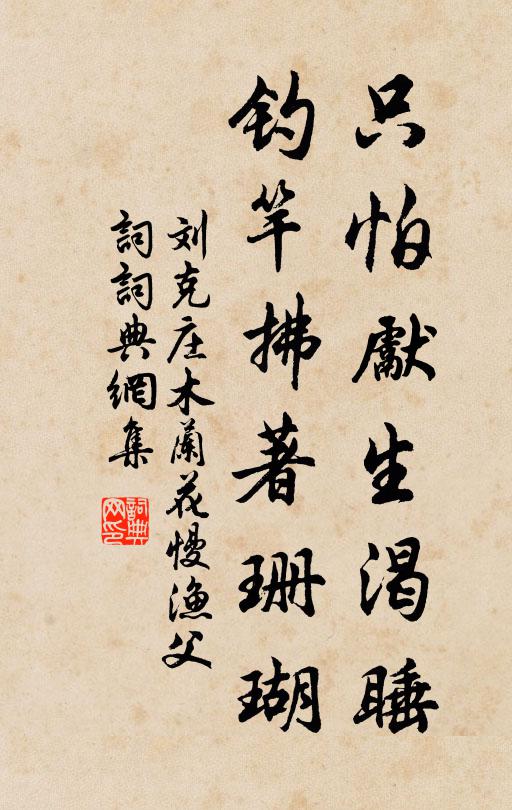 只怕獻生渴睡
釣竿拂著珊瑚
刘克庄木蘭花慢漁父
詞詞典網集
詞典
网印